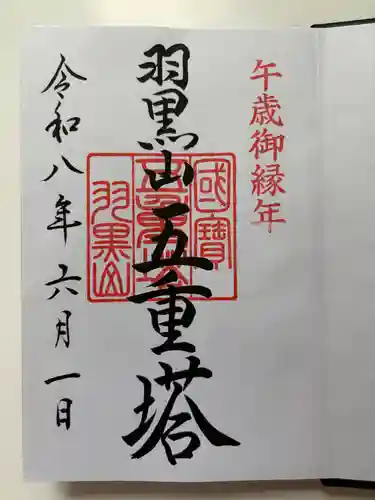 午歳御縁年
羽黒山五重塔
國寶
五重塔
羽黒山
令和八年六月一日